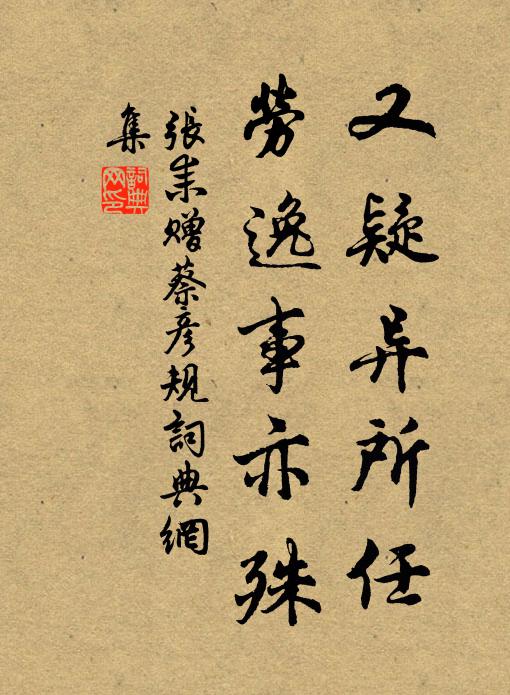 又疑异所任
劳逸事亦殊
張耒赠蔡彦规詞典網
集
詞典
网印